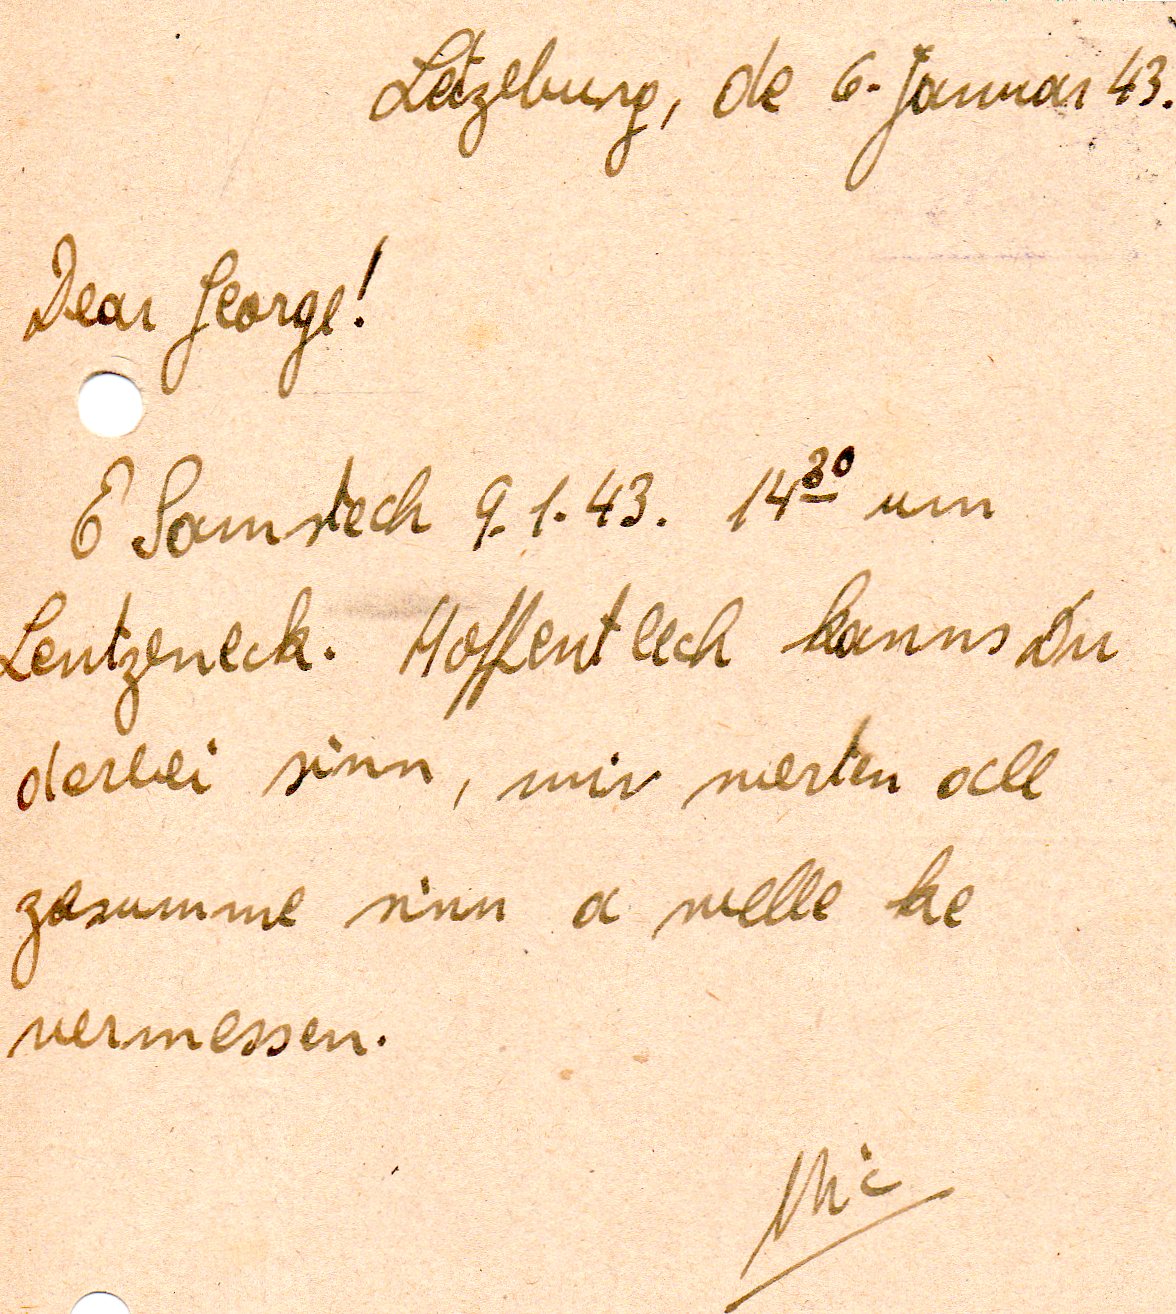 Lëtzeburg, de 6. Januar 43.
Dear George!
E Samstech 9.1.43. 14³⁰ um
Lentzeneck. Hoffentlech kanns Du
derbei sinn, mir werten all
zesumme sinn a welle ke
vermessen.
Mic